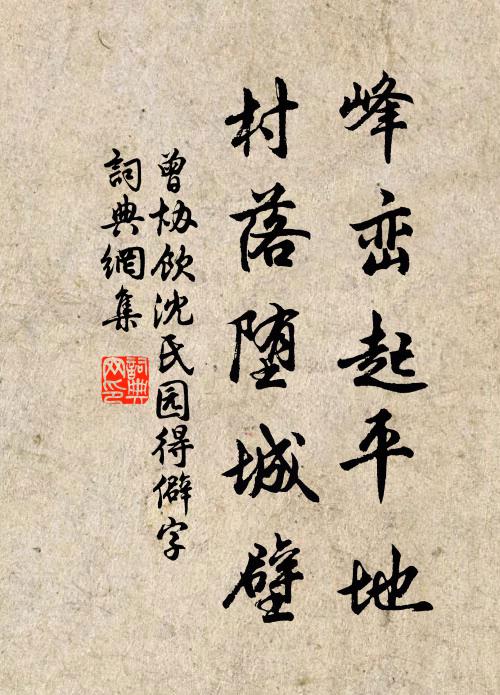 峰峦起平地
村落堕城壁
曾协饮沈氏园得僻字
詞典網集
詞典